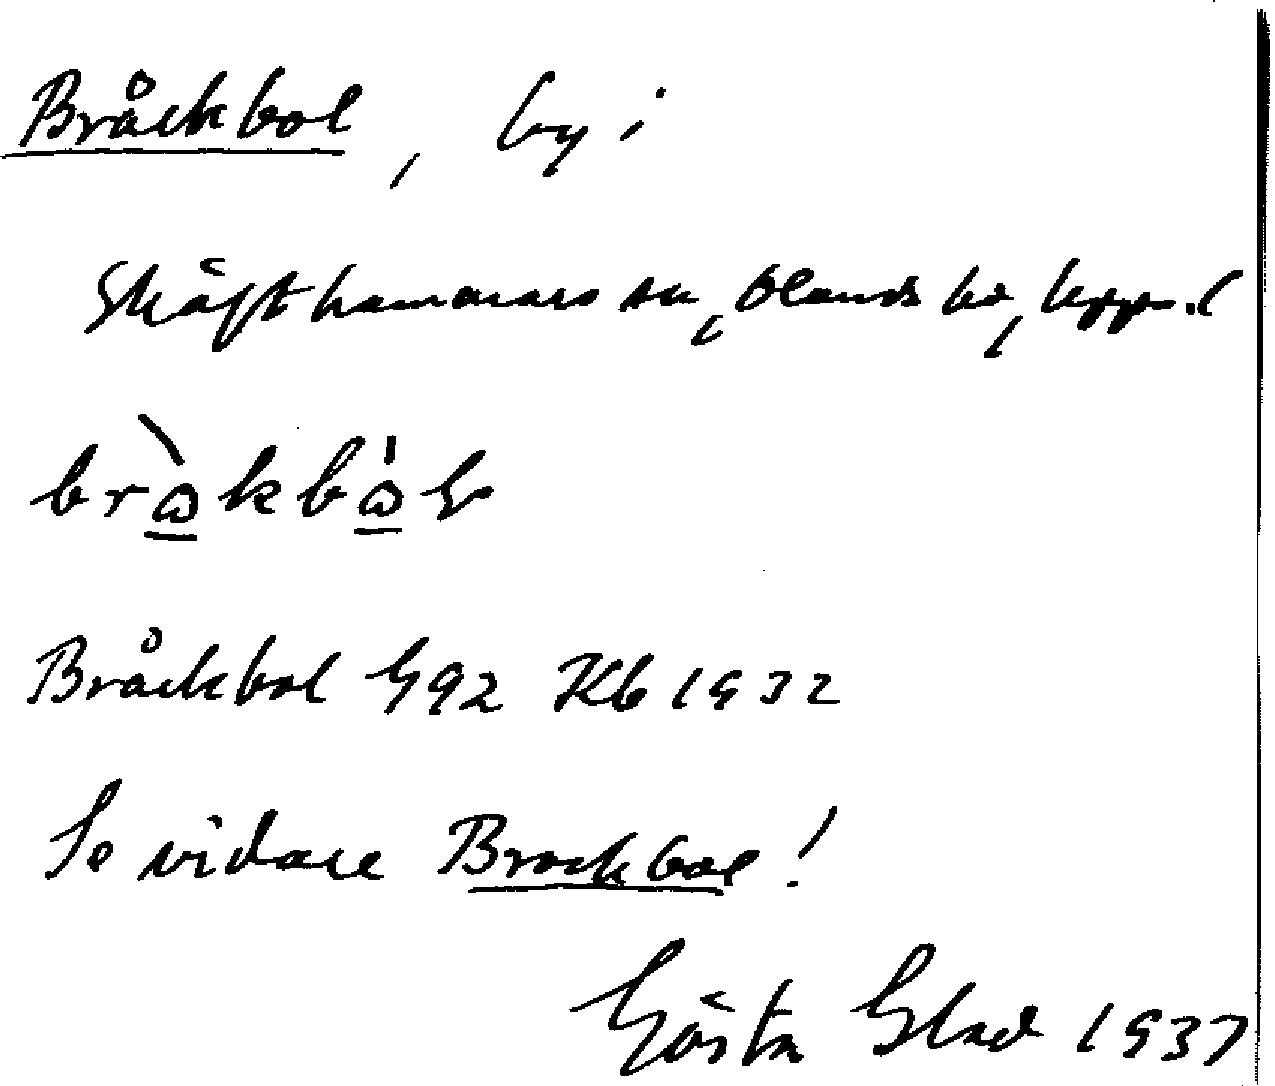 Bråckbol, by i
Skäfthammars sn, Olands hd, Upps. l
bràkbà
Bråckbol G92 Kb 1932
Se vidare Brockbol!
Gösta Glad 1937